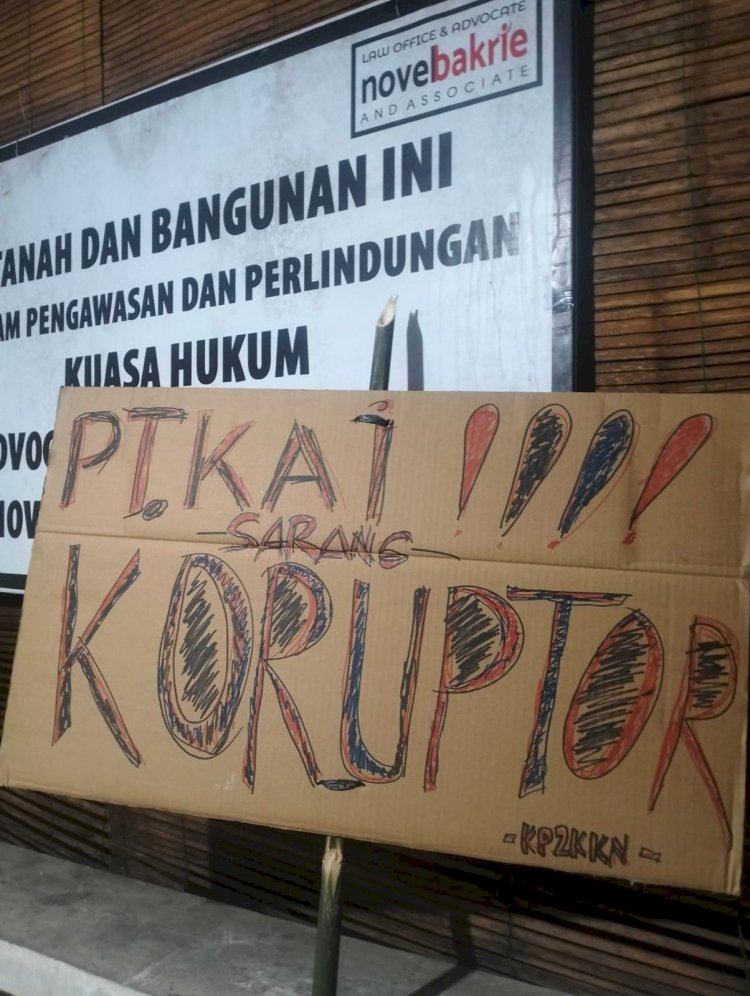 LAW OFFICE & ADVOCATE
novebakrie
AND ASSOCIATE
TANAH DAN BANGUNAN INI
PENGAWASAN DAN PERLINDUNGAN
KUASA HUKUM
PT. KAI !!!!
SARANG
KORUPTOR
- KP2KKN -